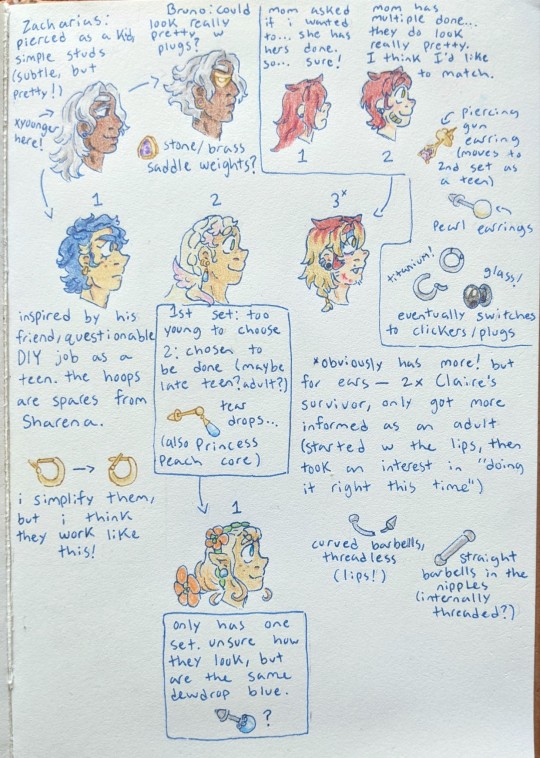 Zacharias:
pierced as a kid,
simple studs
(subtle, but
pretty!)
xyounger
here!
Bruno: could
look really
pretty w
plugs?
stone/brass
saddle weights?
mom asked
if i wanted
to... she has
hers done.
so... sure!
1
mom has
multiple done...
they do look
really pretty.
I think I'd like
to match.
2
piercing
gun
earring
(moves to
2nd set as
a teen)
pearl earrings
titanium!
glass!
eventually switches
to clickers/plugs
1
inspired by his
friend, questionable
DIY job as a
teen. the hoops
are spares from
Sharena.
i simplify them,
but i think
they work like
this!
2
1st set: too
young to choose
2: chosen to
be done (maybe
late teen? adult?)
tear
drops...
(also Princess
Peach core)
3*
*obviously has more! but
for ears — 2x Claire's
survivor, only got more
informed as an adult
(started w the lips, then
took an interest in "doing
it right this time")
curved barbells,
threadless
(lips!)
straight
barbells in the
nipples
(internally
threaded?)
1
only has one
set. unsure how
they look, but
are the same
dewdrop blue.
?